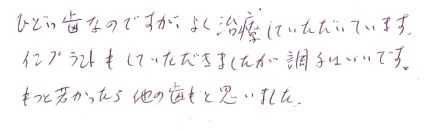 ひどい歯なのですが、よく治療していただいています。
インプラントもしていただきましたが調子はいいです。
もっと若かったら他の歯もと思いました。